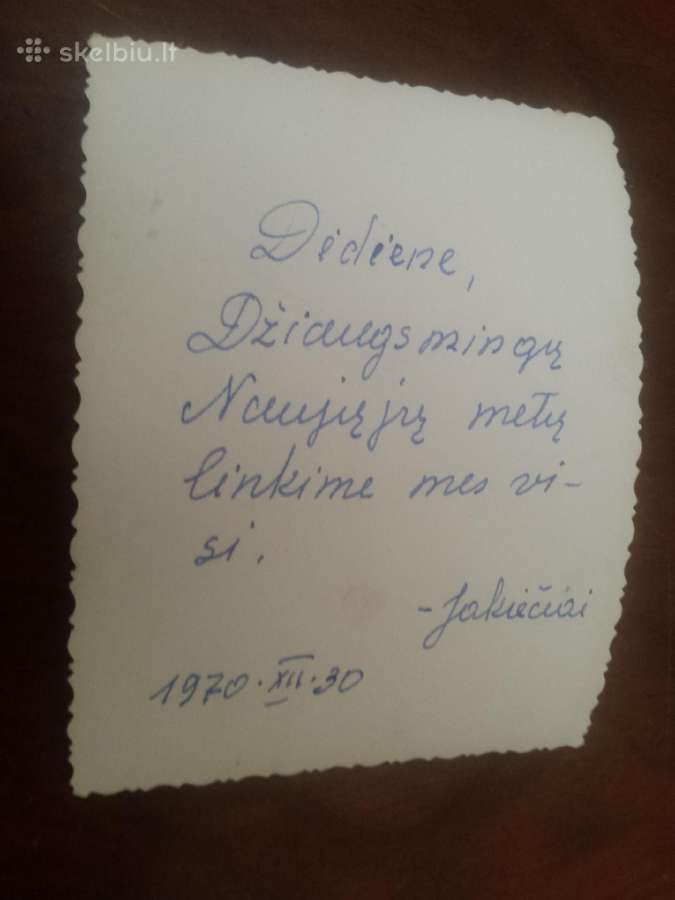 skelbiu.lt
Dėdiene,
Džiaugsmingų
Naujųjų metų
linkime mes vi-
si.
- Jakiečiai
1970.XII.30